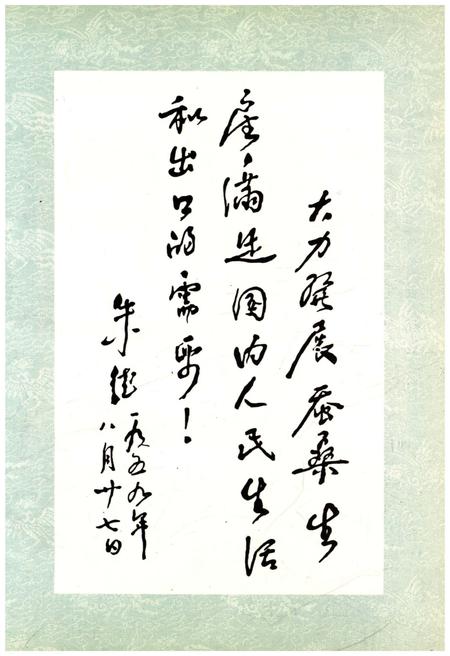 大力發展蚕桑生
産，滿足国内人民生活
和出口的需要！
朱德一九五九年
八月廿七日